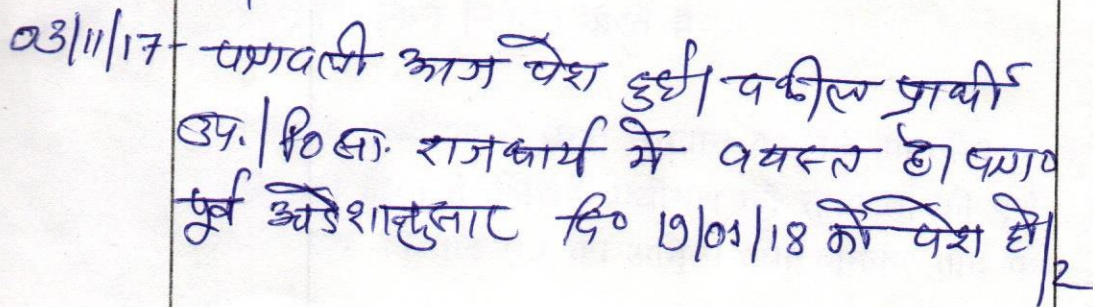 03/11/17- पत्रावली आज पेश हुई। वकील प्रार्थी
उप.। पी0 सा. राजकार्य मे वयस्त है। पत्रा0
पूर्व आदेशानुसार दि० 19/01/18 को पेश हो।
2